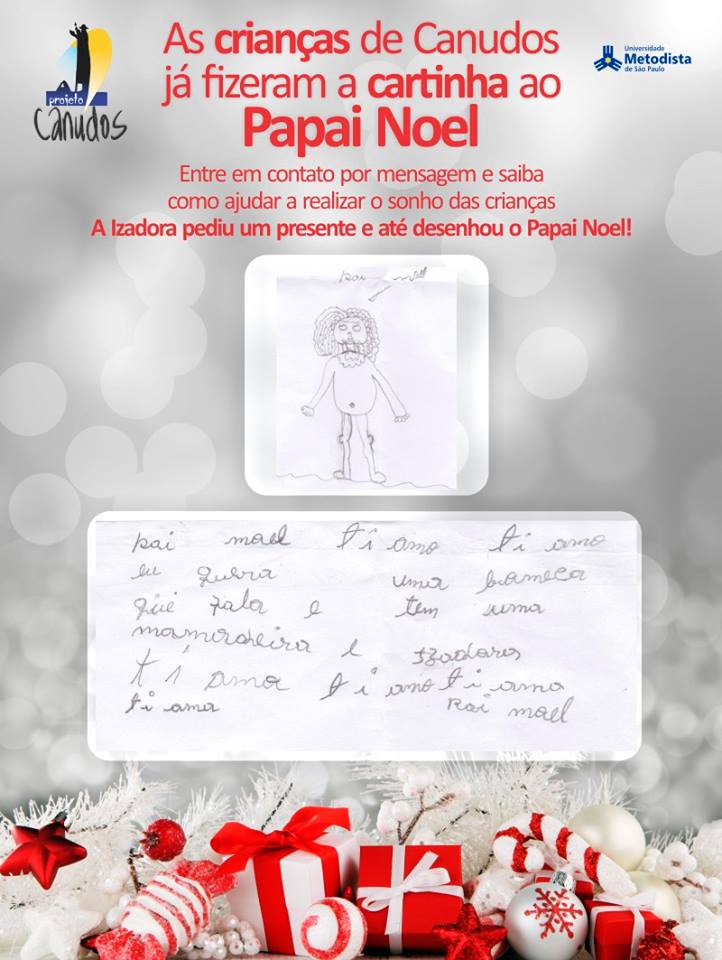 projeto
Canudos
Universidade
Metodista
de São Paulo
As crianças de Canudos
já fizeram a cartinha ao
Papai Noel
Entre em contato por mensagem e saiba
como ajudar a realizar o sonho das crianças
A Izadora pediu um presente e até desenhou o Papai Noel!
pai noel
pai mael ti amo ti amo
eu quera uma bameca
que fala e tem uma
e Izadora
ti amo ti amo ti amo
ti amo pai mael